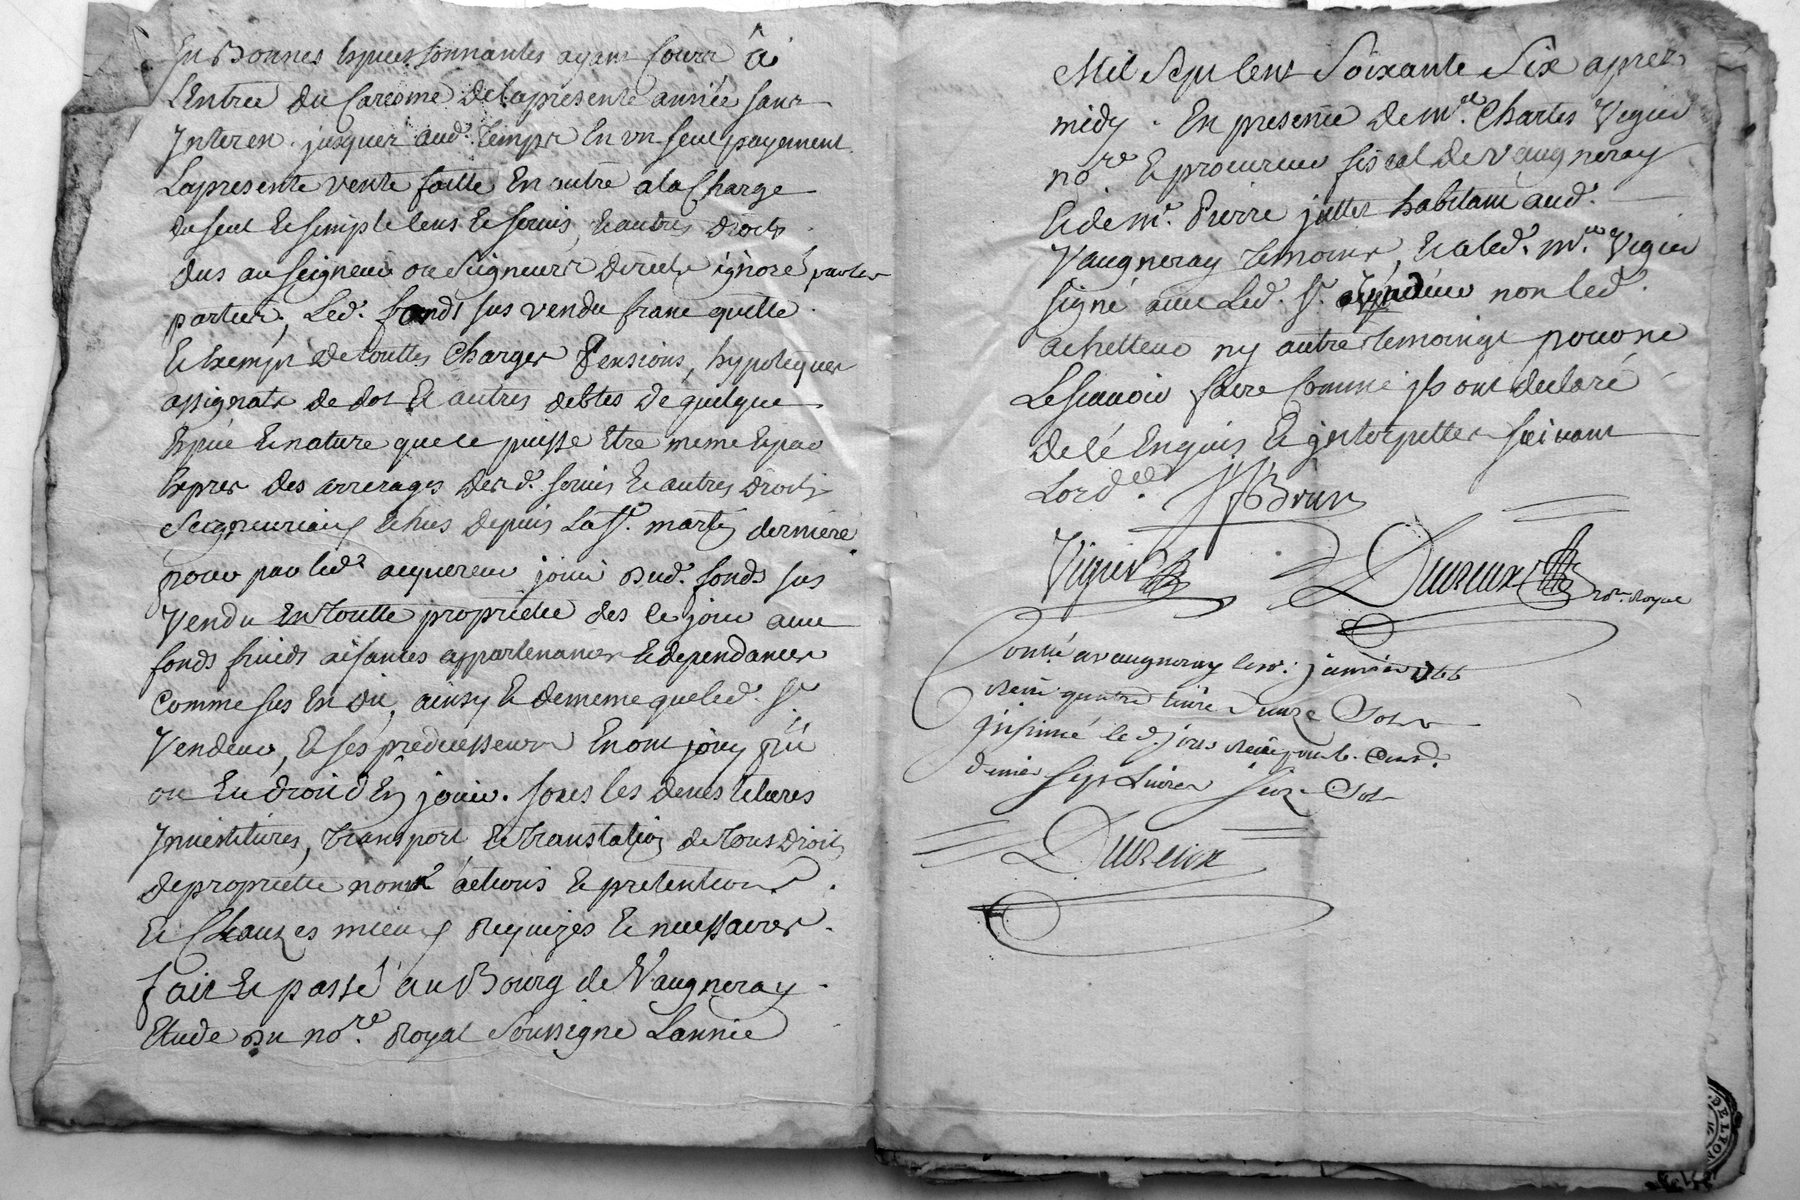 En Bonnes Especes sonnantes ayant Cours a
L'Entrée du Caresme de la presente année sans
Interest jusques aud. temps En un seul payement
La presente vente faitte En outre a la Charge
du seul et simple Cens et servis, et autres Droits
dus au seigneur ou seigneurs Directs ignoré par les
parties, Led. fonds sus vendu franc quitte
Et Exempt de touttes Charges Pensions, hypoteques
assignats de dot Et autres debtes de quelque
Espece Et nature que ce puisse Etre meme Et par
Exprès des arrerages desd. servis Et autres Droits
Seigneuriaux Echus depuis La St. martin derniere
pour par led. acquereur jouir dud. fonds sus
Vendu En toutte proprieté des ce jour avec
fonds fruits aisances appartenances Et dependances
Comme sus En dit, ainsy Et de meme que led. Sr.
Vendeur, Et ses predecesseurs En ont jouy pû
ou Eu droit d'En jouir. sous les devestitures
Investitures, transport Et translation de tous Droits
de proprieté noms actions Et pretentions
Et Clauzes mieux Requizes Et necessaires
fait Et passé au Bourg de Vaugneray
Etude du nore. Royal Soussigné L'année
Mil Sept Cent Soixante Six après
midy. En presence de Me. Charles Vigier
nore Et procureur fiscal de Vaugneray
Et de Mr. Pierre jullet habitant aud.
Vaugneray temoins, Et a led. Me. Vigier
signé avec Led. Sr. vendeur non led.
achetteur ny autre temoingt pour ne
Le sçavoir faire Comme ils ont declaré
de ce Enquis Et interpellés suivant
L'ord.ce Brun
Vigier Duvreux nore. Royal
Controllé a vaugneray le janvier 1766
Receu quatre livre onze Sols
insinué le d. jour Receu pour le Cent.
denier sept Livres seize Sols
Duvreux